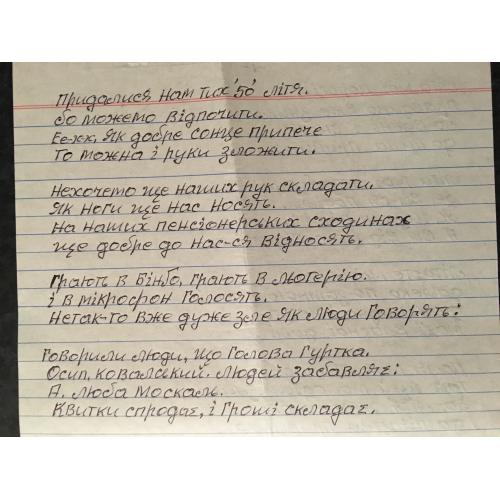 Придалися нам тих '50' літя.
бо можемо відпочити.
Ее-хх, як добре сонце припече
то можна і руки зложити.
Нехочемо ще наших рук складати.
як ноги ще нас носять.
на наших пенсіонерських сходинах
ще добре до нас-ся відносять.
грають в бінго, грають в льотерію.
і в мікрофон голосять.
Нетак-то вже дуже зле як люди говорять:
говорили люди, що голова гуртка.
Осип, ковальский. людей забавляє:
А. люба москаль.
Квитки спродає, і гроші складає.